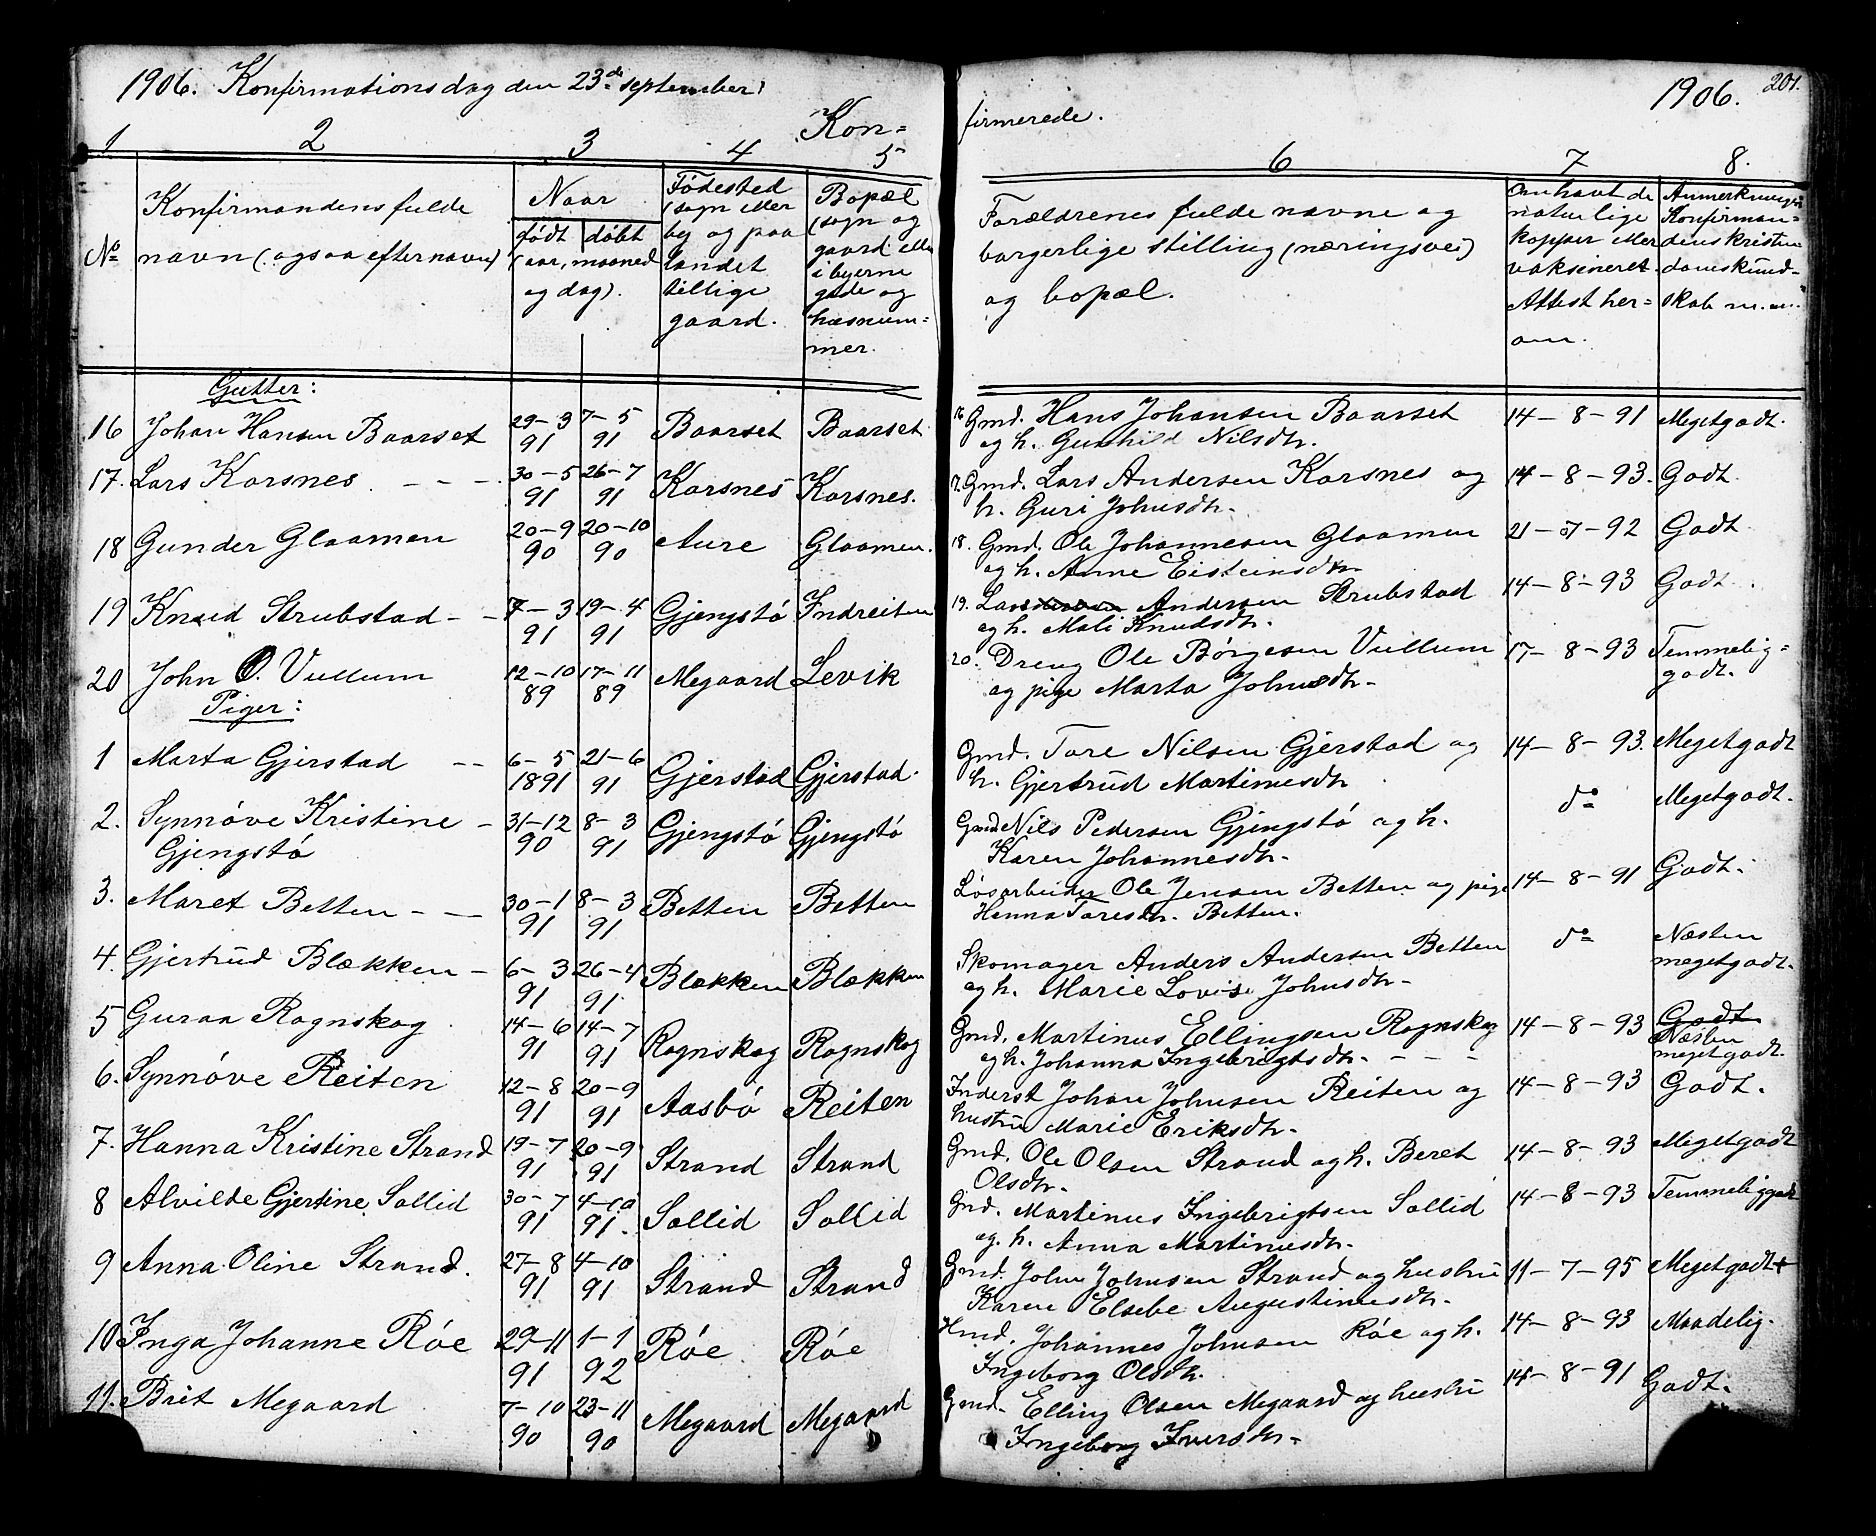 1906. Konfirmationsdag den 23de september.
Kon-
1. 2 3 4 5
No
Konfirmandens fulde
navn (ogsaa efternavn)
Naar
født døbt
(aar, maaned
og dag).
Fødested
(sogn eller
by og paa
landet
tillige
gaard.
Bopæl
(sogn og
gaard eller
i byerne
gade og
husnum-
mer.
Gutter:
16 Johan Hansen Baarset 29-3 91 7-5 91 Baarset Baarset
17. Lars Korsnes - - - 30-5 91 26-7 91 Korsnes Korsnes.
18 Gunder Glaamen 20-9 90 20-10 90 Aure Glaamen.
19 Knud Strubstad - - 7-3 91 19-4 91 Gjengstø Indreiten
20 John O. Vullum 12-10 89 17-11 89 Megaard Levik
Piger:
1 Marta Gjerstad - - 6-5 1891 21-6 91 Gjerstad Gjerstad.
2. Synnøve Kristine - 31-12 90 8-3 91 Gjengstø Gjengstø
Gjengstø
3. Maret Betten - - 30-1 91 8-3 91 Betten Betten
4. Gjertrud Blækken - 6-3 91 26-4 91 Blækken Blækken
5 Guraa Rognskog 14-6 91 14-7 91 Rognskog Rognskog
6. Synnøve Reiten 12-8 91 20-9 91 Aasbø Reiten
7. Hanna Kristine Strand 19-7 91 20-9 91 Strand Strand
8 Alvilde Gjertine Sollid 30-7 91 4-10 91. Sollid Sollid
9 Anna Oline Strand. 27-8 91 4-10 91 Strand Strand
10 Inga Johanne Røe 29-11 91 1-1 92 Røe Røe
11. Brit Megaard 7-10 90 23-11 90 Megaard Megaard
firmerede.
1906. 201.
6 7 8.
Forældrenes fulde navne og
borgerlige stilling (næringsvei)
og bopæl.
Om havt de
naturlige
kopper eller
vaksineret.
Attest her-
om.
Anmerkninger
Konfirman-
dens kristen
domskund-
skab m.m.
16 Gmd. Hans Johansen Baarset 14-8-91 Megetgodt.
og h. Gunhild Nilsdtr.
17. Gmd. Lars Andersen Korsnes og 14-8-93. Godt.
h. Guri Johnsdtr.
18. Gmd. Ole Johannesen Glaamen 21-7-92 Godt
og h. Anne Eisteinsdtr.
19. Lars Andersen Strubstad 14-8-93 Godt.
og h. Mali Knudsdtr.
20. Dreng Ole Børgesen Vullum 17-8-93 Temmelig-
og pige Marta Johnsdtr. godt.
Gmd. Tore Nilsen Gjerstad og 14-8-93. Megetgodt
h. Gjertrud Martinusdtr
Gmd Nils Pedersen Gjengstø og h. do Megetgodt.
Karen Johannesdtr.
Løsarbeider Ole Jensen Betten og pige 14-8-91 Godt.
Hanna Toresdtr. Betten.
Skomager Anders Andersen Betten do Næsten
og h. Marie Lovise Johnsdtr. megetgodt.
Gmd. Martinus Ellingsen Rognskog 14-8-93 Godt.
og h. Johanna Ingebrigtsdtr. - - - Næsten
megetgodt.
Inderst Johan Johnsen Reiten og 14-8-93 Godt.
hustru Marie Eriksdtr.
Gmd. Ole Olsen Strand og h. Beret 14-8-93 Megetgodt
Olsdtr.
Gmd. Martinus Ingebrigtsen Sollid 14-8-93 Temmeliggodt
og. h. Anna Martinusdtr.
Gmd. John Johnsen Strand og hustru 11-7-95 Megetgodt+
Karen Elsebe Augustinusdtr.
Hmd. Johannes Johnsen Røe og h. 14-8-93 Maadelig.
Ingeborg Olsdtr.
Gmd. Elling Olsen Megaard og hustru 14-8-91 Godt.
Ingeborg Iversdtr.